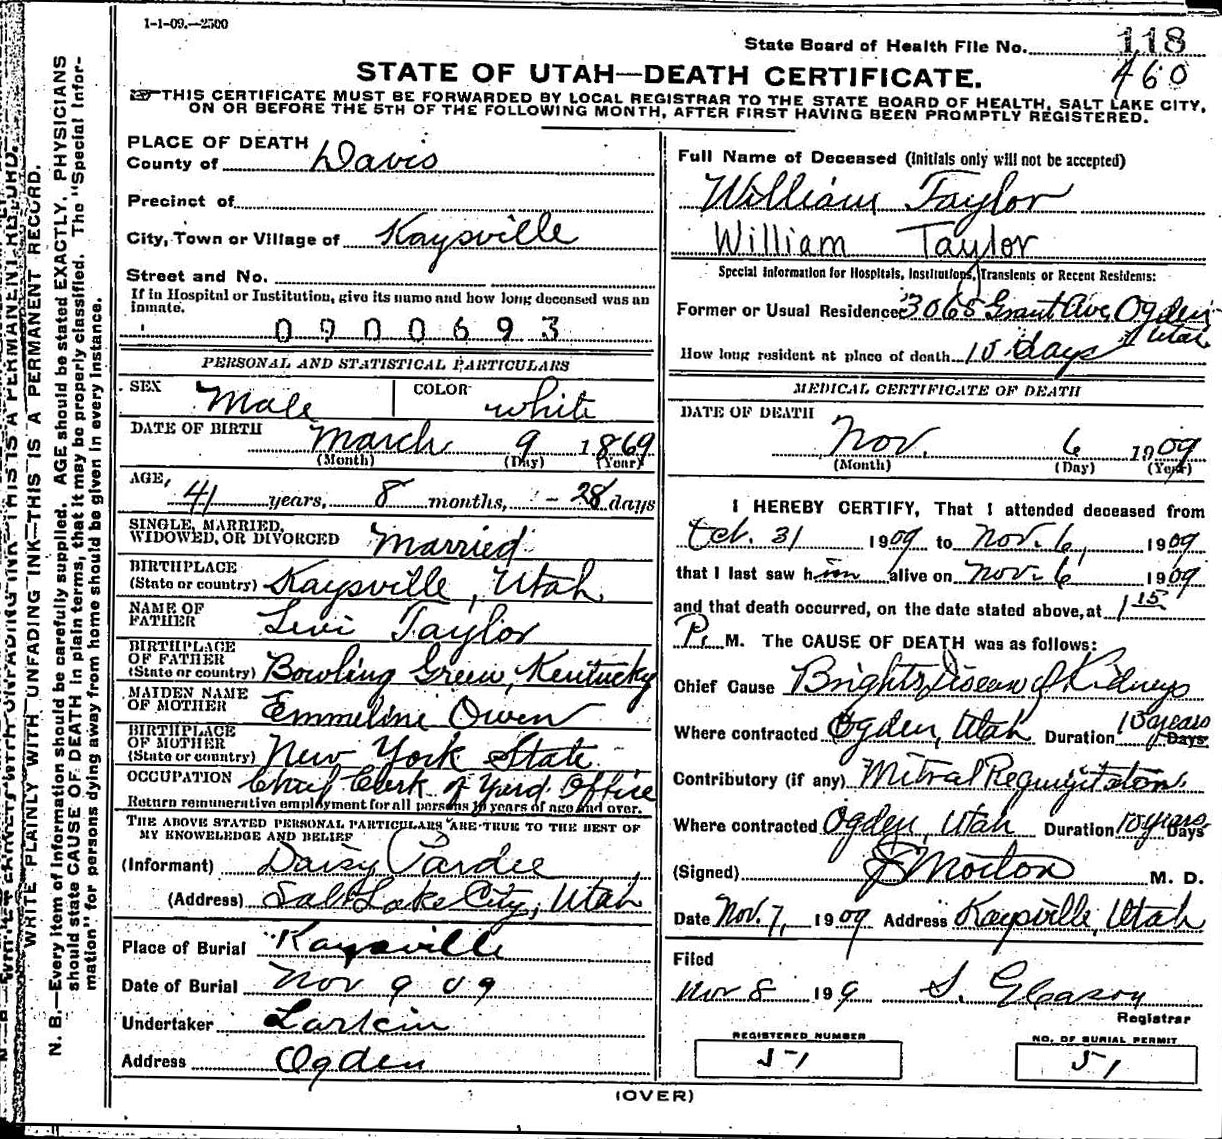 1-1-09.—2500
State Board of Health File No. 118
460
STATE OF UTAH—DEATH CERTIFICATE.
THIS CERTIFICATE MUST BE FORWARDED BY LOCAL REGISTRAR TO THE STATE BOARD OF HEALTH, SALT LAKE CITY,
ON OR BEFORE THE 5TH OF THE FOLLOWING MONTH, AFTER FIRST HAVING BEEN PROMPTLY REGISTERED.
PLACE OF DEATH
County of Davis
Precinct of
City, Town or Village of Kaysville
Street and No.
If in Hospital or Institution, give its name and how long deceased was an
inmate.
0900693
PERSONAL AND STATISTICAL PARTICULARS
SEX Male COLOR white
DATE OF BIRTH March 9 1869
(Month) (Day) (Year)
AGE, 41 years, 8 months, - 28 days
SINGLE, MARRIED,
WIDOWED, OR DIVORCED Married
BIRTHPLACE
(State or country) Kaysville, Utah
NAME OF
FATHER Levi Taylor
BIRTHPLACE
OF FATHER
(State or country) Bowling Green, Kentucky
MAIDEN NAME
OF MOTHER Emmeline Owen
BIRTHPLACE
OF MOTHER
(State or country) New York State
OCCUPATION Chief Clerk of Yard Office
Return remunerative employment for all persons 10 years of age and over.
THE ABOVE STATED PERSONAL PARTICULARS ARE TRUE TO THE BEST OF
MY KNOWLEDGE AND BELIEF
(Informant) Daisy Pardee
(Address) Salt Lake City, Utah
Place of Burial Kaysville
Date of Burial Nov 9 09
Undertaker Larkin
Address Ogden
Full Name of Deceased (Initials only will not be accepted)
William Taylor
William Taylor
Special Information for Hospitals, Institutions, Transients or Recent Residents:
Former or Usual Residence 3068 Grant Ave Ogden
Utah
How long resident at place of death 15 days
MEDICAL CERTIFICATE OF DEATH
DATE OF DEATH
Nov. 6 1909
(Month) (Day) (Year)
I HEREBY CERTIFY, That I attended deceased from
Oct. 31 1909 to Nov. 6, 1909
that I last saw him alive on Nov. 6 1909
and that death occurred, on the date stated above, at 1 15
P. M. The CAUSE OF DEATH was as follows:
Chief Cause Brights Disease of Kidneys
Where contracted Ogden, Utah Duration 15 years Days
Contributory (if any) Mitral
Where contracted Ogden, Utah Duration 15 years Days
(Signed) Morton M. D.
Date Nov. 7, 1909 Address Kaysville, Utah
Filed
Nov 8 199 S. Gleason
Registrar
REGISTERED NUMBER
51
NO. OF BURIAL PERMIT
51
(OVER)
WRITE PLAINLY WITH UNFADING INK—THIS IS A PERMANENT RECORD.
N. B.—Every item of information should be carefully supplied. AGE should be stated EXACTLY. PHYSICIANS
should state CAUSE OF DEATH in plain terms, that it may be properly classified. The "Special Infor-
mation" for persons dying away from home should be given in every instance.